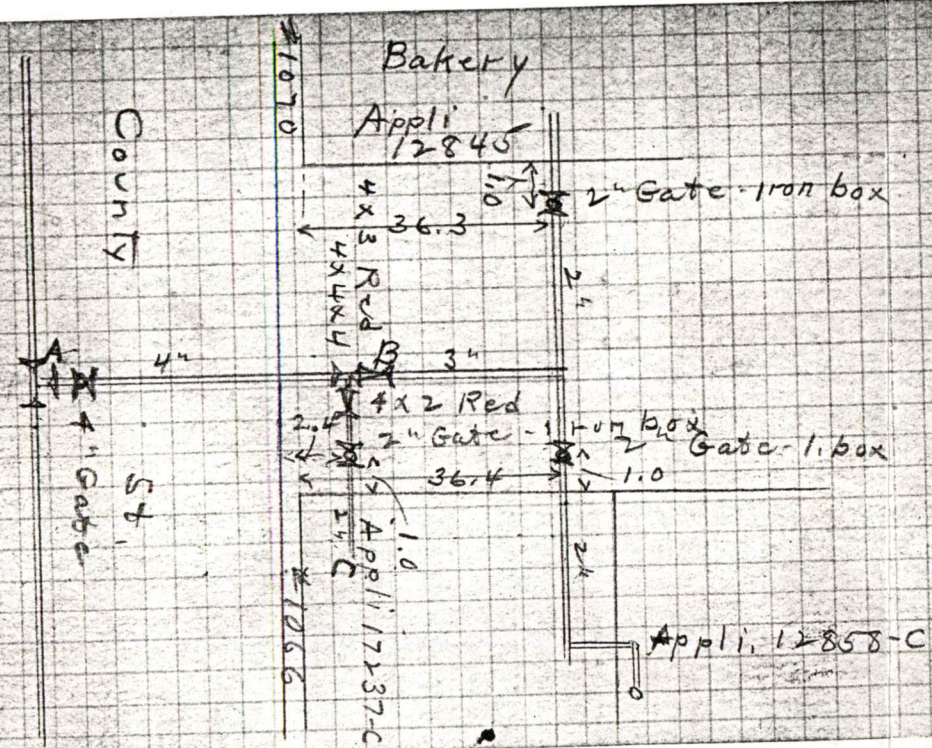 Bakery
#1070
Appli
12845
County
1.0
2" Gate-Iron box
36.3
4 x 3 Red
4x4x4
2"
A
4"
B
3"
4 x 2 Red
2.4
2" Gate - Iron box
2" Gate-1. box
4" Gate
St.
36.4
1.0
1.0
2"
C
Appli 17237-C
2"
#1066
Appli. 12858-C